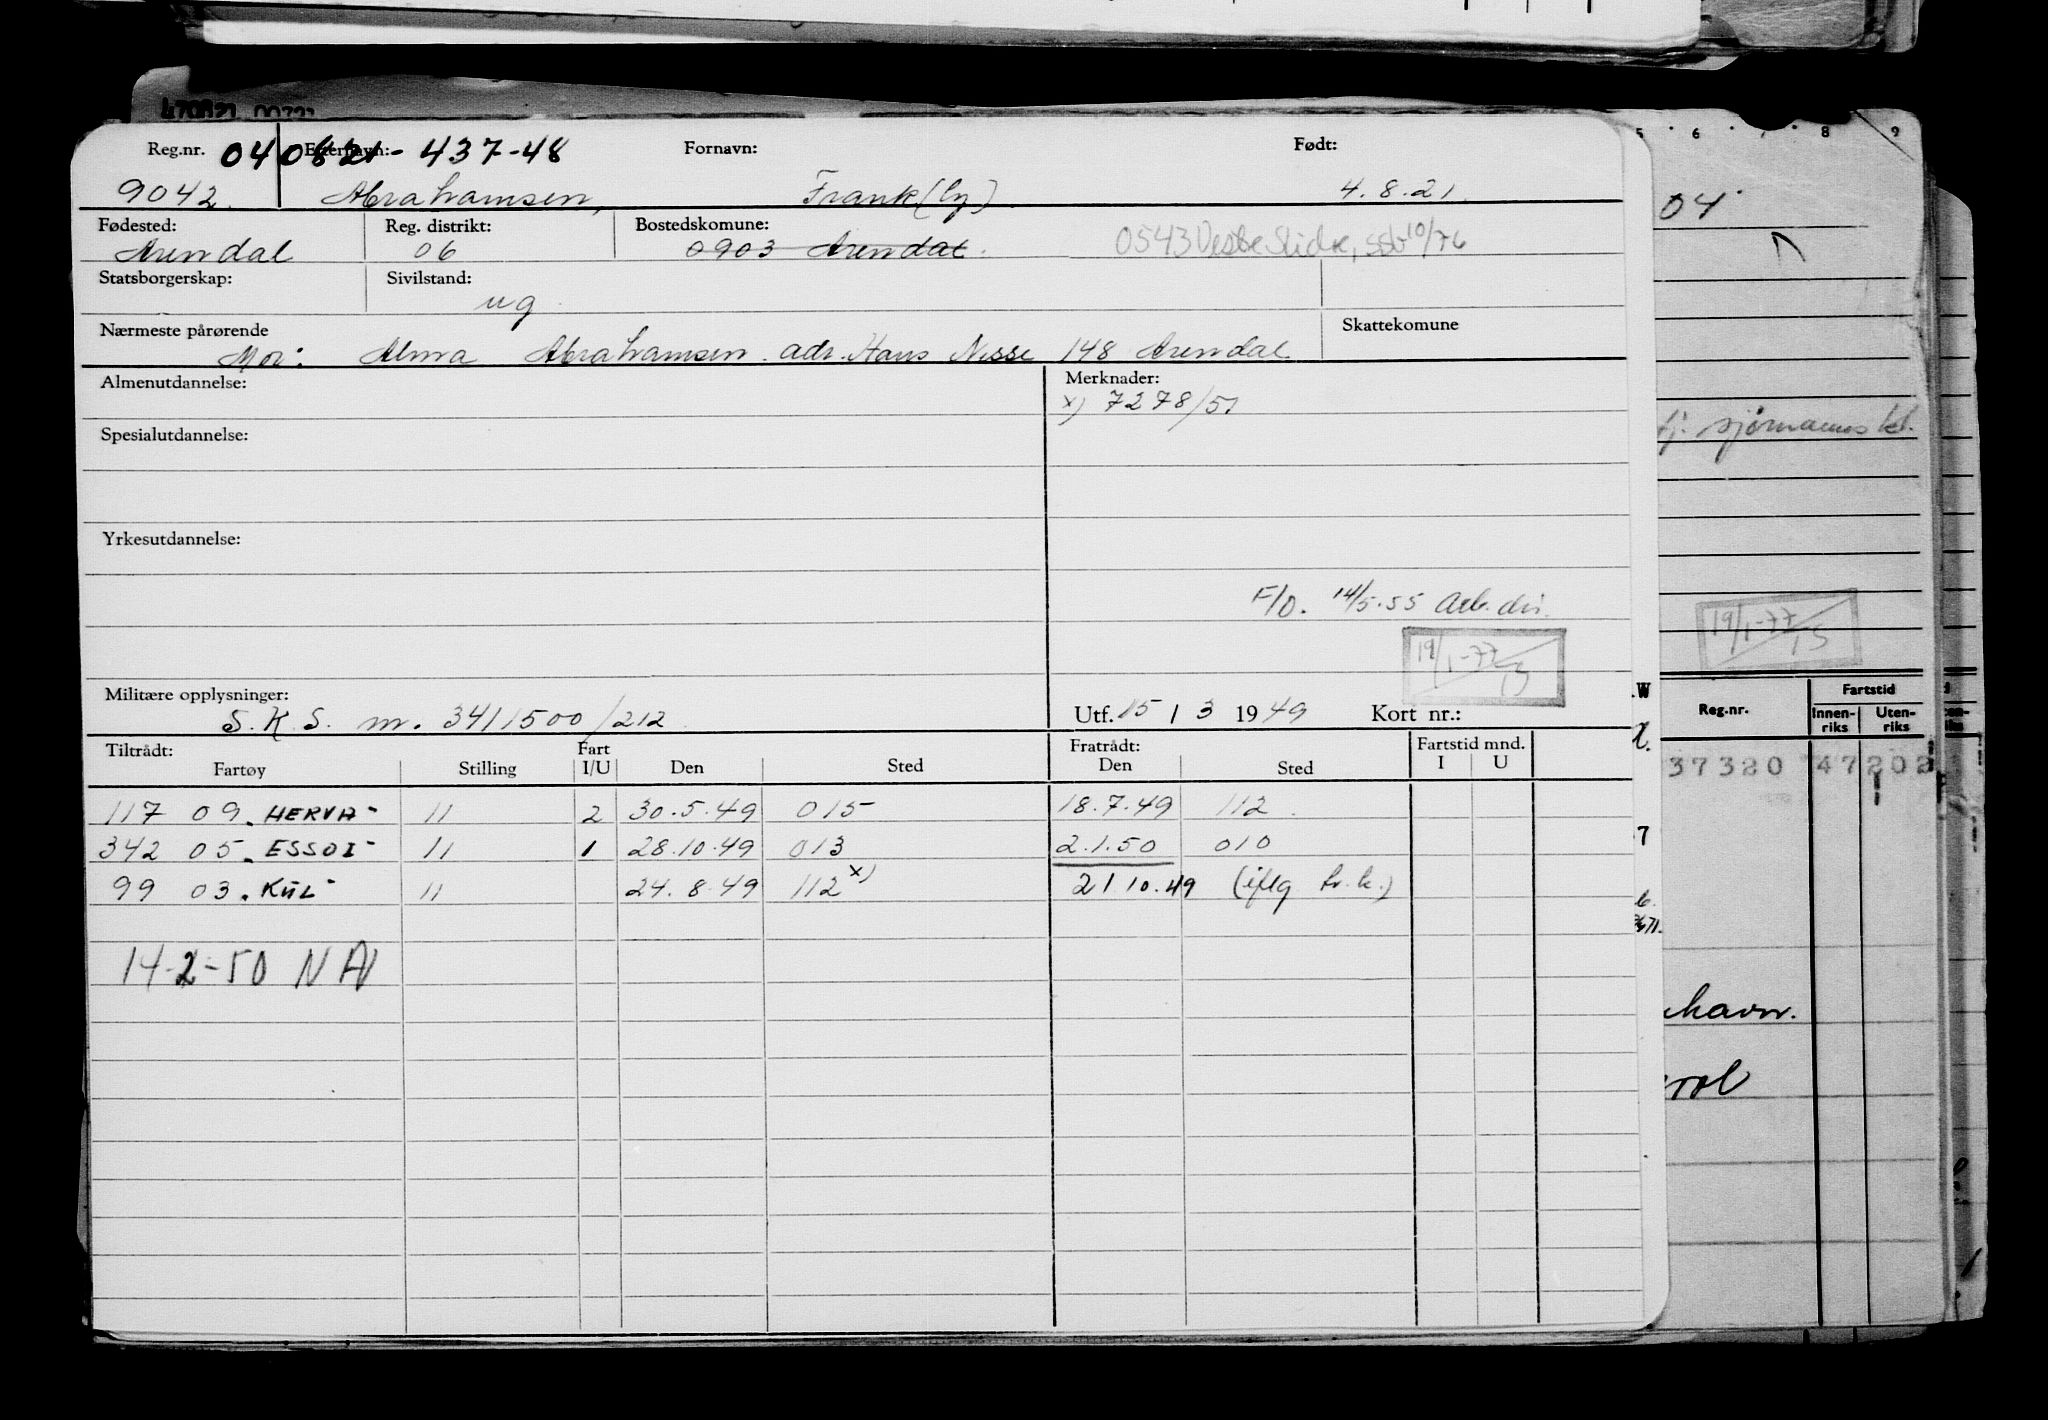 470821 00721
Reg.nr. 040821-437-48 Etternavn: Fornavn: Født:
9042. Abrahamsen, Frank (Ly) 4.8.21.
Fødested: Reg. distrikt: Bostedskomune:
Arendal 06 0903 Arendal. 0543 Vestre Slidre, SSB 10/76
Statsborgerskap: Sivilstand:
ug.
Nærmeste pårørende Skattekomune
Mor: Alma Abrahamsen adr. Hans Nisse 148 Arendal
Almenutdannelse: Merknader:
x) 7278/51
Spesialutdannelse:
Yrkesutdannelse:
F/O. 14/5.55 Arb.dir.
19/1-77
Militære opplysninger:
S.K.S. nr. 3411500/212 Utf. 15 / 3 1949 Kort nr.:
Tiltrådt: Fart Fratrådt: Fartstid mnd.
Fartøy Stilling I/U Den Sted Den Sted I U
117 09. HERVA- 11 2 30.5.49 015 18.7.49 112
342 05. ESSOI- 11 1 28.10.49 013 2.1.50 010
99 03. KIIL- 11 24.8.49 112 x) 21 10.49 (iflg hr.k.)
14-2-50 NAV
5 6 7 8 9
04
sjømannskl.
19/1-77/15
W
Reg.nr. Fartstid
Innen-riks Uten-riks
37320 47 202
7
havn.
rol